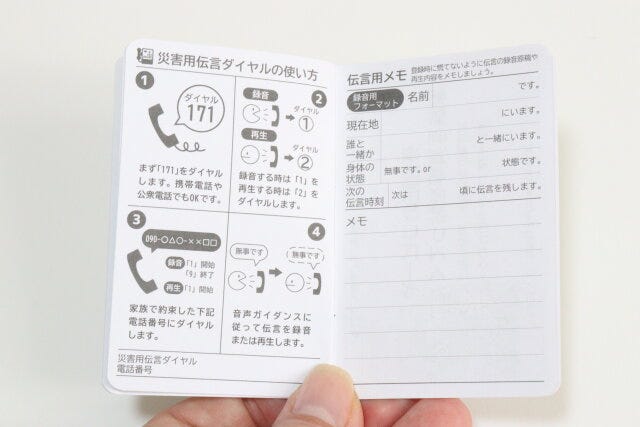 災害用伝言ダイヤルの使い方
1
ダイヤル
171
まず「171」をダイヤル
します。携帯電話や
公衆電話でもOKです。
2
録音
ダイヤル
①
再生
ダイヤル
②
録音する時は「1」を
再生する時は「2」を
ダイヤルします。
3
090-○△○-××□□
録音「1」開始
「9」終了
再生「1」開始
家族で約束した下記
電話番号にダイヤル
します。
4
無事です
無事です
音声ガイダンスに
従って伝言を録音
または再生します。
災害用伝言ダイヤル
電話番号
伝言用メモ
登録時に慌てないように伝言の録音原稿や
再生内容をメモしましょう。
録音用
フォーマット
名前 です。
現在地 にいます。
誰と
一緒か と一緒にいます。
身体の
状態 無事です。or 状態です。
次の
伝言時刻 次は 頃に伝言を残します。
メモ